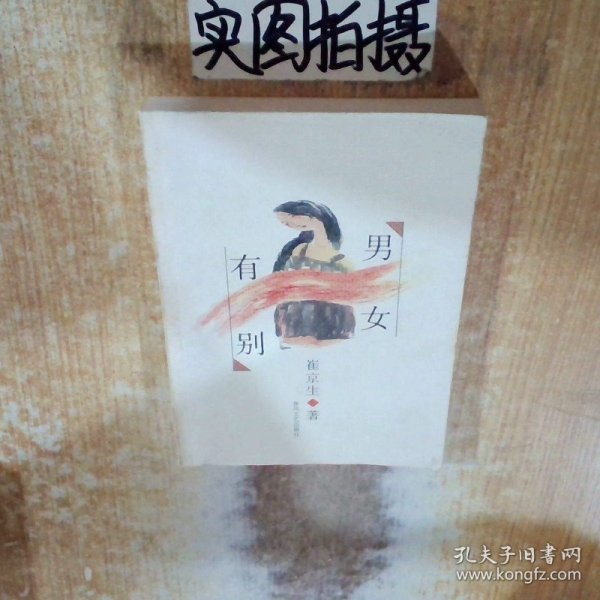 实图拍摄
男女
有别
崔京生◆著
春风文艺出版社
孔夫子旧书网
www.kongfz.com